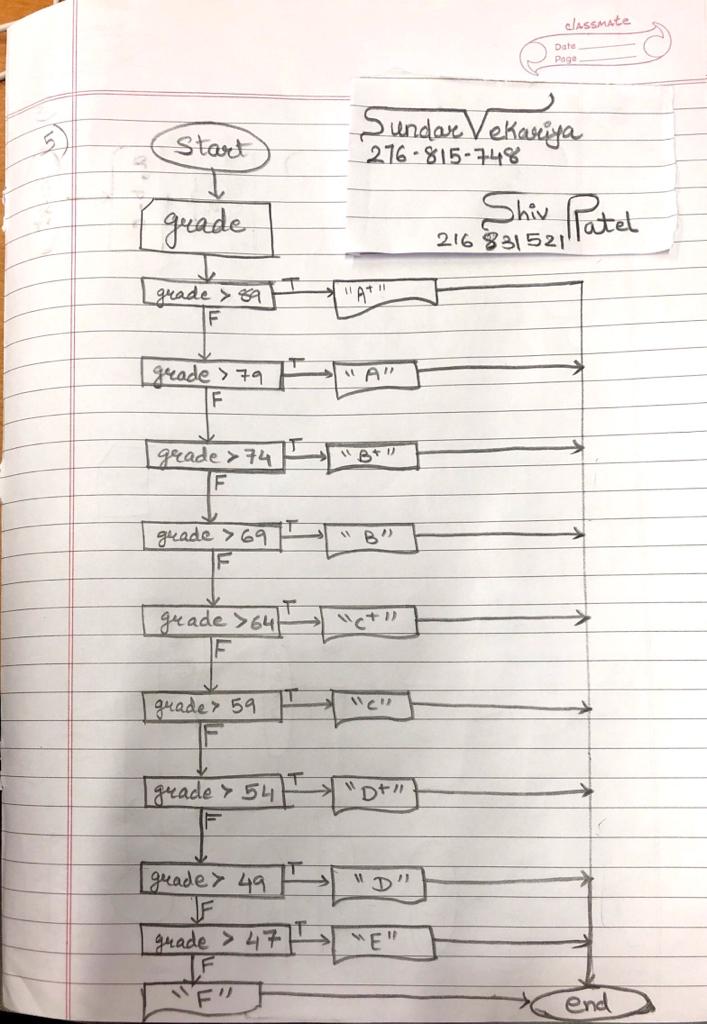 classmate
Date
Page
5)
Sundar Vekariya
276-815-748
Shiv Patel
216 831521
Start
grade
grade > 89 T "A+"
F
grade > 79 T "A"
F
grade > 74 T "B+"
F
grade > 69 T "B"
F
grade > 64 T "C+"
F
grade > 59 T "C"
F
grade > 54 T "D+"
F
grade > 49 T "D"
F
grade > 47 T "E"
F
"F" end